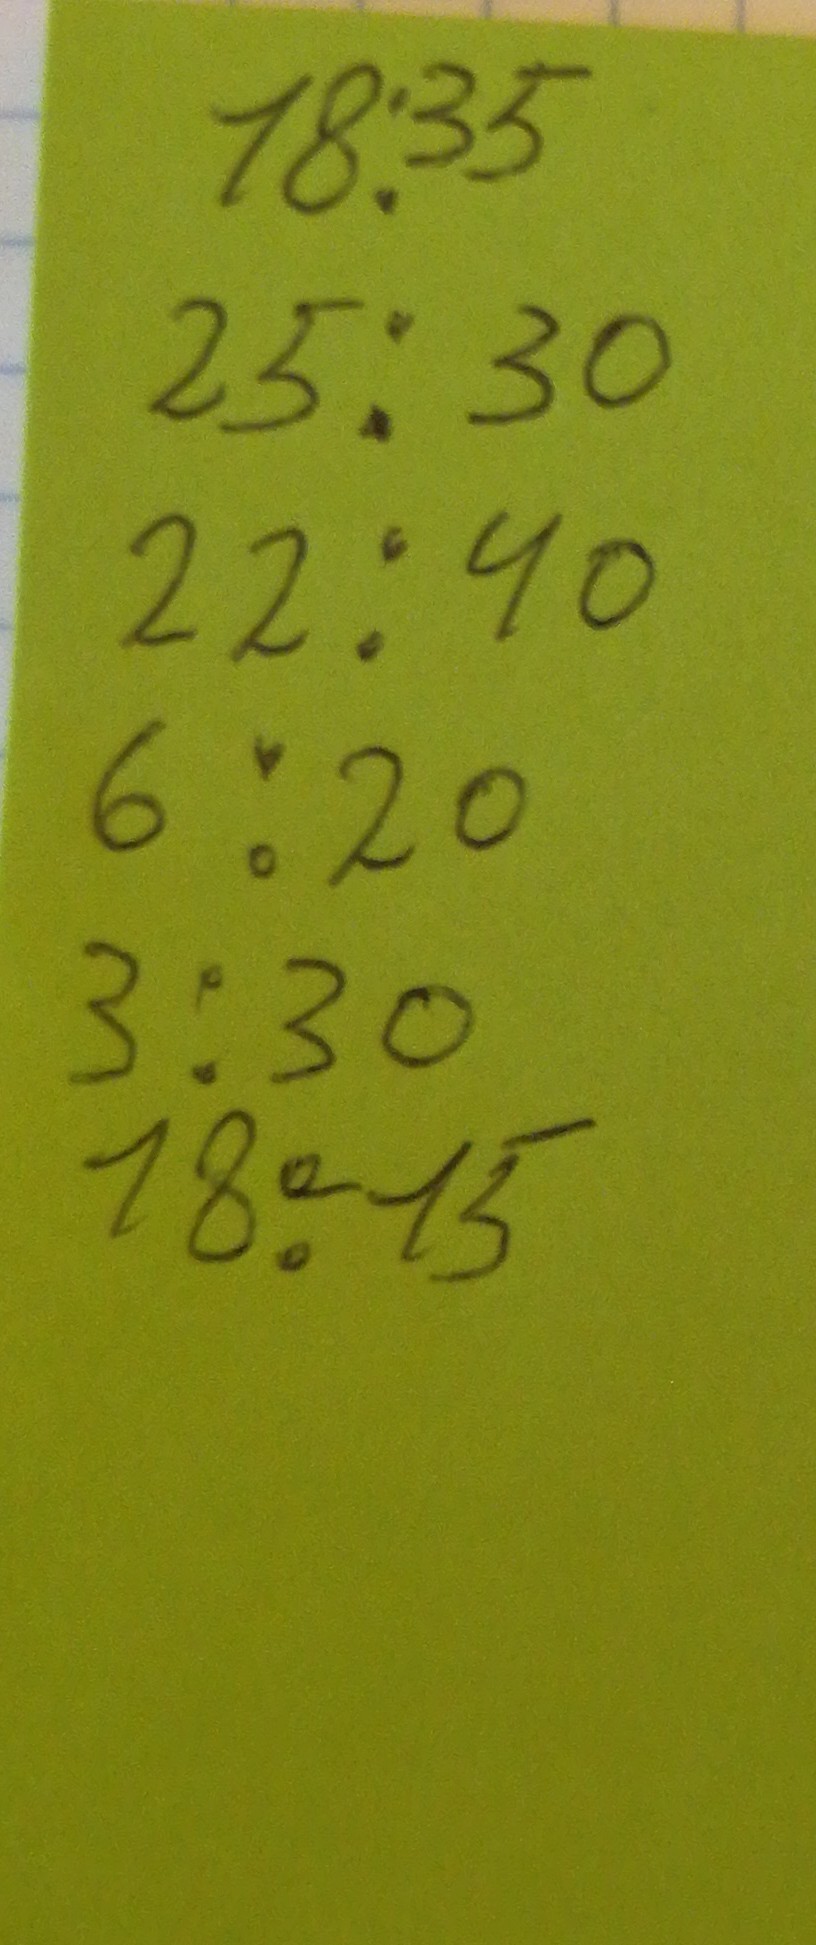 18:35
25:30
22:40
6:20
3:30
18:15